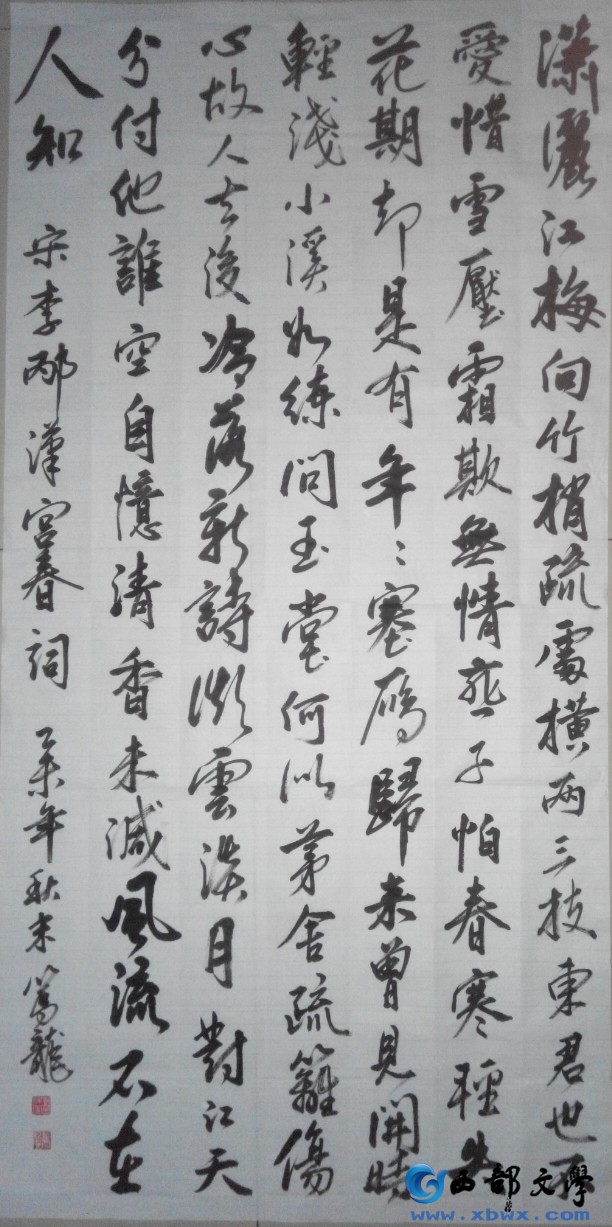 瀟灑江梅向竹梢疏處横两三枝東君也不
愛惜雪壓霜欺無情燕子怕春寒輕失
花期却是有年々塞雁歸来曾見開時
輕淺小溪如練問玉堂何似茅舍疏籬傷
心故人去後冷落新詩微雲淡月對江天
分付他誰空自憶清香未減風流不在
人知 宋李邴漢宫春詞 乙未年秋末篤龍
西部文學
www.xbwx.com